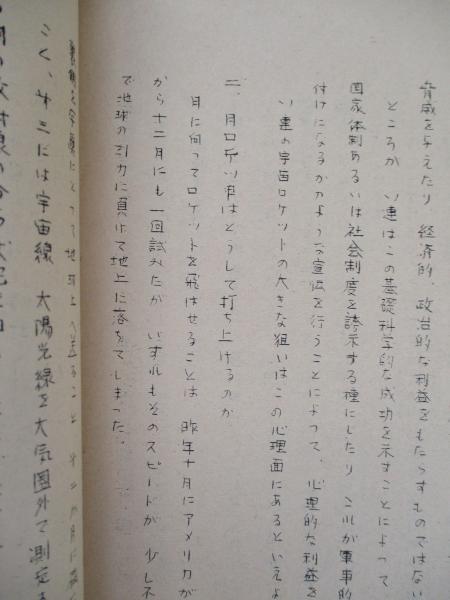 脅威を与えたり 経済的 政治的な利益をもたらすものではない
ところが ソ連はこの基礎科学的な成功を示すことによって
国家体制あるいは社会制度を誇示する種にしたり これが軍事的
付けになるかのような宣伝を行うことによって、心理的な利益を
ソ連の宇宙ロケットの大きな狙いはこの心理面にあるといえよ
二、月ロケットはどうして打ち上げるのか
月に向ってロケットを飛ばせることは 昨年十月にアメリカが
から十二月にも一回試みたが いずれもそのスピードが 少し
で地球の引力に負けて地上に落ちてしまった。
こく、第三には宇宙線 太陽光線を大気圏外で測定